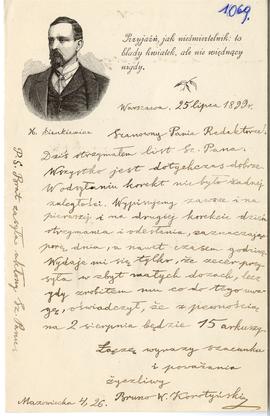 1069.
Przyjaźń, jak nieśmiertelnik: to
blady kwiatek, ale nie więdnący
nigdy.
Warszawa, 25 lipca 1899 r.
H. Sienkiewicz
Szanowny Panie Redaktorze!
Dziś otrzymałem list Sz. Pana.
Wszystko jest dotychczas dobrze.
W odsyłaniu korekt nie było żadnej
zaległości. Wypisujemy zawsze i na
pierwszej i na drugiej korekcie dzień
otrzymania i odesłania, zaznaczając
porę dnia, a nawet czasem godzinę.
Wydaje mi się tylko, że zecer przy-
syła w zbyt małych dozach, lecz
gdy zrobiłem mu co do tego uwa-
gę, oświadczył, że z pewnością
na 2 sierpnia będzie 15 arkuszy.
Łączę wyrazy szacunku
i poważania
życzliwy
Bruno W. Korotyński
Mazowiecka 4/26.
P.S. Brat Sz. Pana